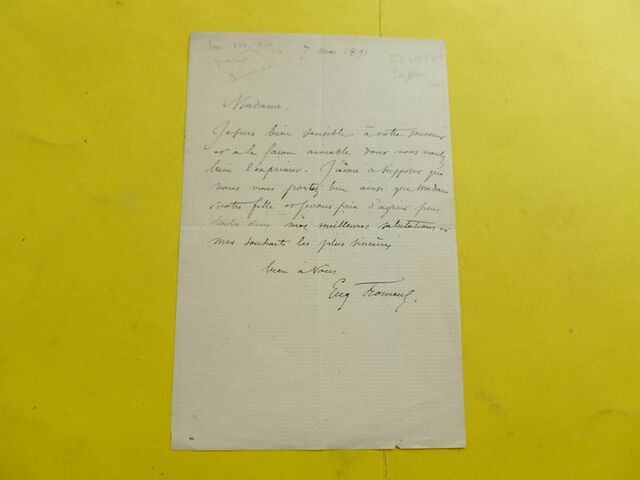 7 mai 1891
FROMENT
Eugène
Madame,
Je suis bien sensible à votre souvenir
et à la façon aimable dont vous voulez
bien l'exprimer. J'aime à supposer que
vous vous portez bien ainsi que Madame
votre fille et je vous prie d'agréer pour
toutes deux mes meilleures salutations et
mes souhaits les plus sincères
bien à vous
Eug Froment.